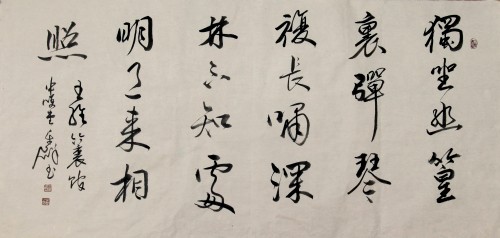 獨坐幽篁
裏彈琴
複長嘯深
林不知處
明月来相
照
王維竹裏館
书